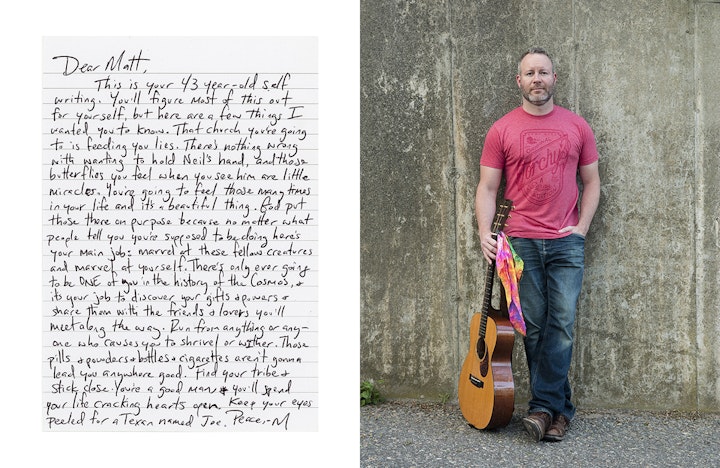 Dear Matt,
This is your 43 year-old self
writing. You'll figure most of this out
for yourself, but here are a few things I
wanted you to know. That church you're going
to is feeding you lies. There's nothing wrong
with wanting to hold Neil's hand, and those
butterflies you feel when you see him are little
miracles. You're going to feel those many times
in your life and it's a beautiful thing. God put
those there on purpose because no matter what
people tell you you're supposed to be doing here's
your main job: marvel at these fellow creatures
and marvel at yourself. There's only ever going
to be ONE of you in the history of the Cosmos, &
its your job to discover your gifts & powers &
share them with the friends & lovers you'll
meet along the way. Run from anything or any-
one who causes you to shrivel or wither. Those
pills & powders & bottles & cigarettes aren't gonna
lead you anywhere good. Find your tribe &
stick close. You're a good man & you'll spend
your life cracking hearts open. Keep your eyes
peeled for a Texan named Joe. Peace, -M